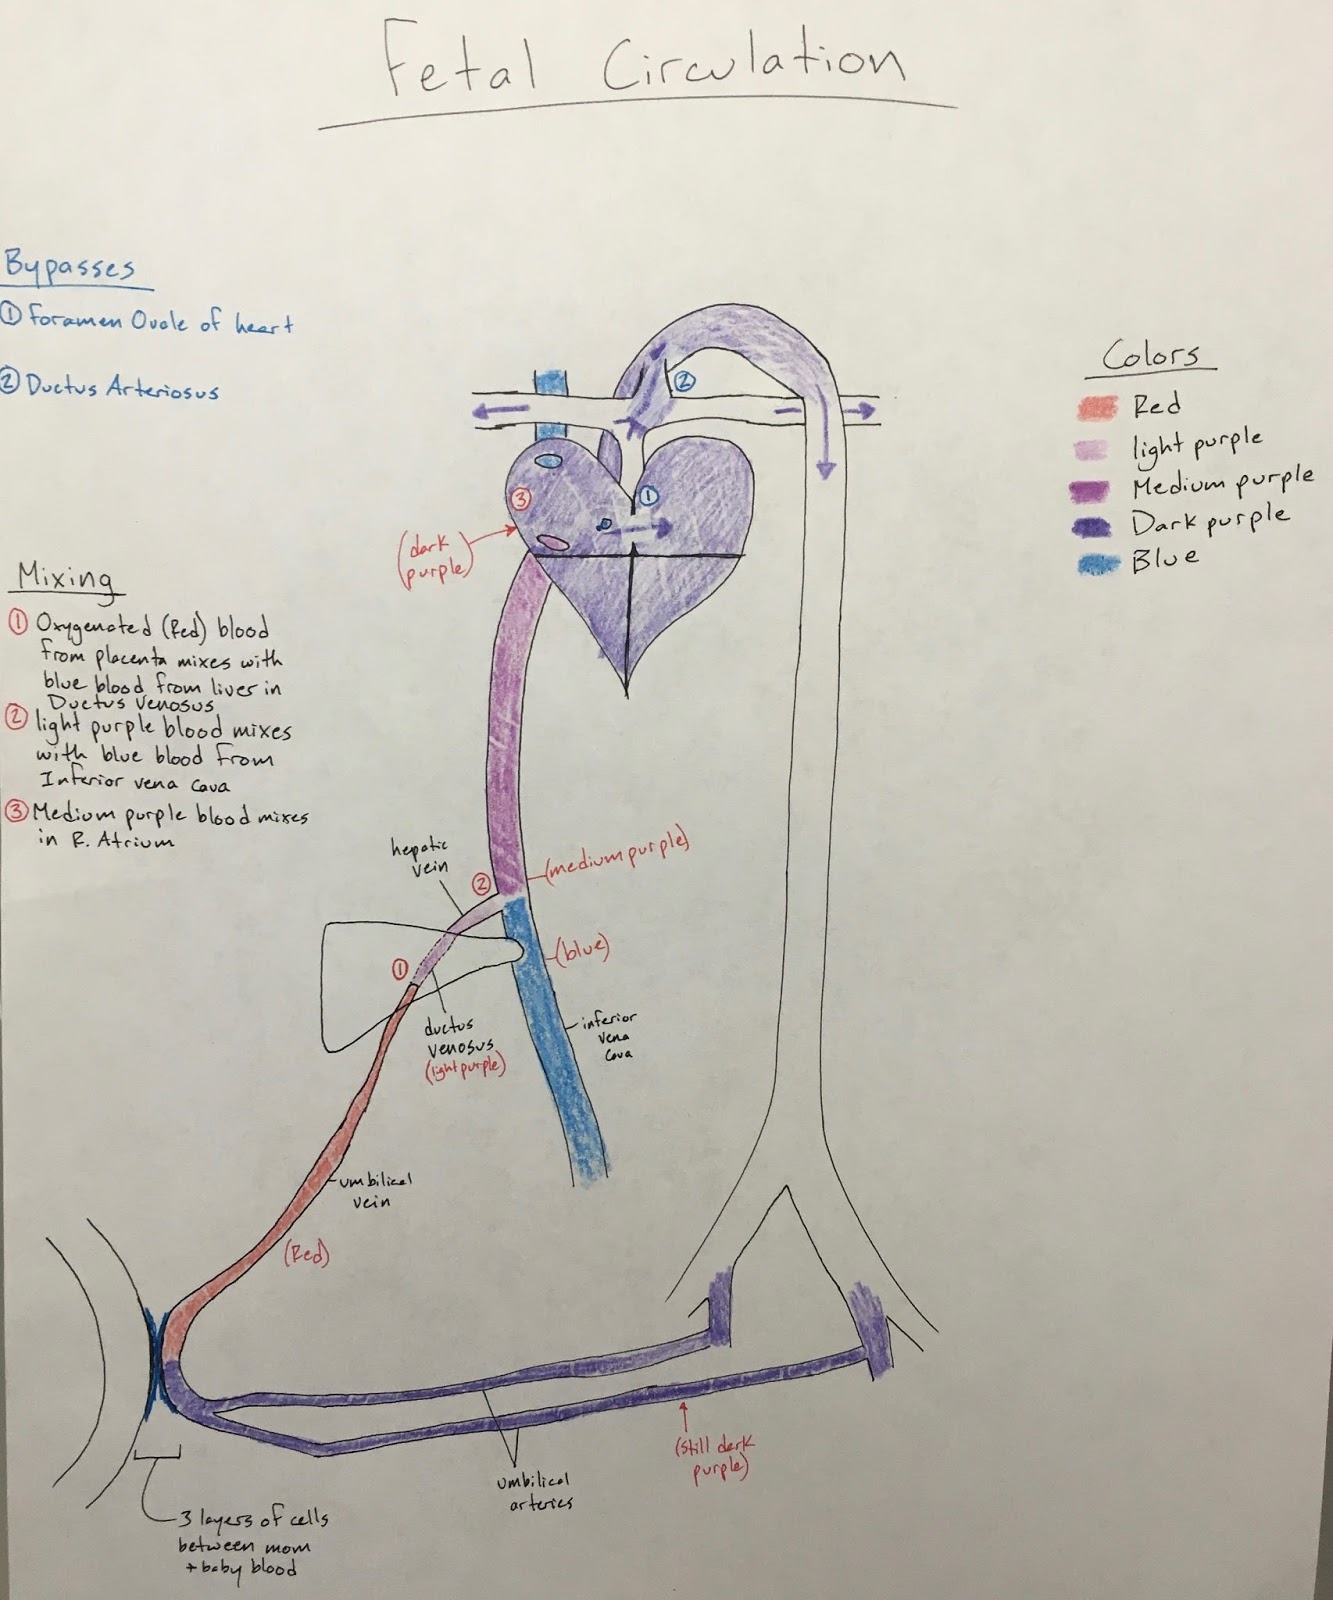 Fetal Circulation
Bypasses
① Foramen Ovale of heart
② Ductus Arteriosus
Mixing
① Oxygenated (Red) blood
from placenta mixes with
blue blood from liver in
Ductus Venosus
② light purple blood mixes
with blue blood from
Inferior vena cava
③ Medium purple blood mixes
in R. Atrium
Colors
Red
light purple
Medium purple
Dark purple
Blue
②
③
①
(dark
purple)
hepatic
vein
②
(medium purple)
①
(blue)
ductus
venosus
(light purple)
inferior
vena
cava
umbilical
vein
(Red)
(still dark
purple)
umbilical
arteries
3 layers of cells
between mom
+ baby blood